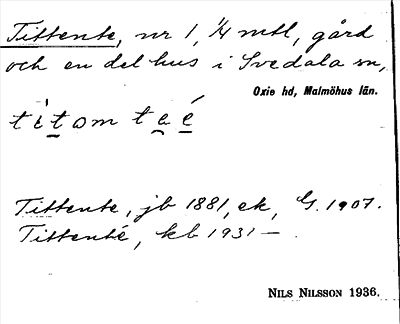 Tittente, nr 1, 1/4 mtl, gård
och en del hus i Svedala sn,
Oxie hd, Malmöhus län.
Tittente, jb 1881, ek, G. 1907.
Tittenté, kb 1931 —
NILS NILSSON 1936.